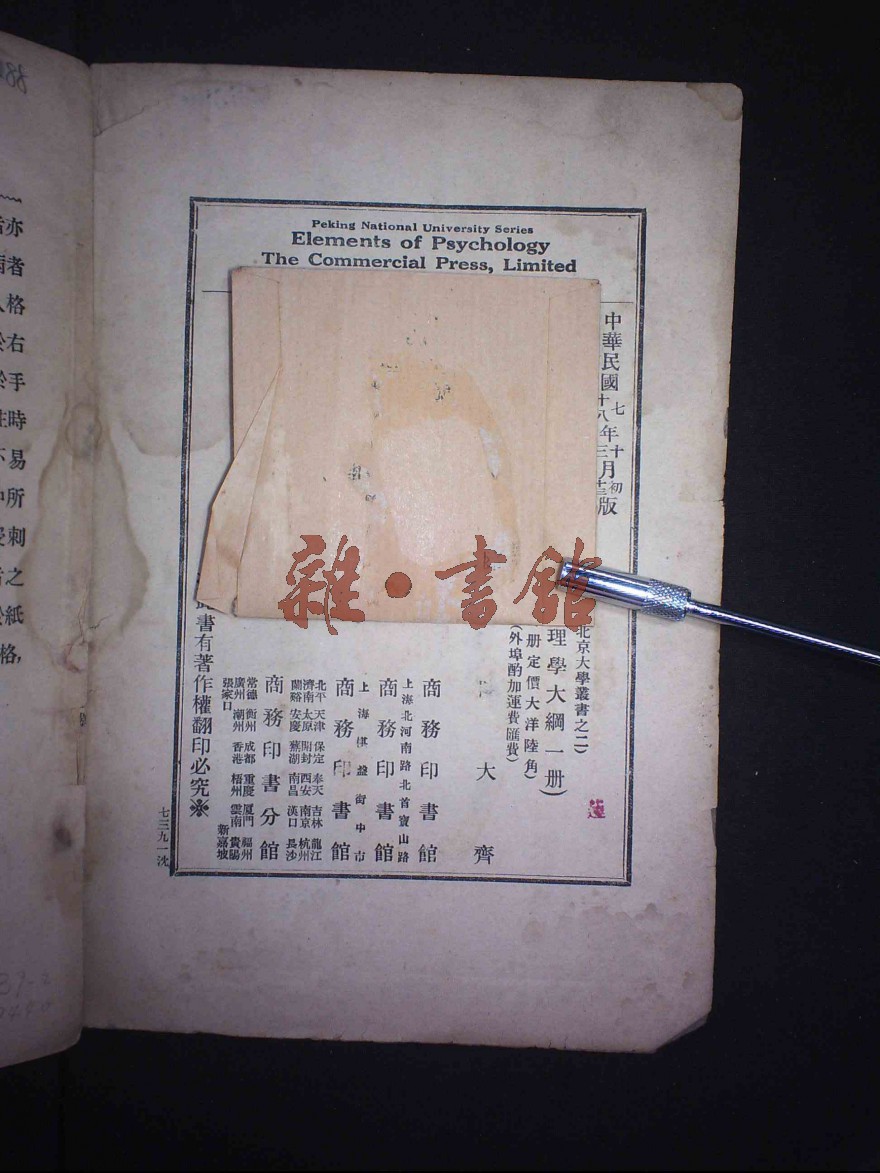 Peking National University Series
Elements of Psychology
The Commercial Press, Limited
中華民國七年十月初版
十八年三月十三版
北京大學叢書之二)
理學大綱一册)
册定價大洋陸角
(外埠酌加運費匯費)
大齊
商務印書館
上海北河南路北首寶山路
商務印書館
上海棋盤街中市
商務印書館
北平 天津 保定 奉天 吉林 龍江
濟南 太原 開封 西安 南京 杭州
蘭谿 安慶 蕪湖 南昌 漢口 長沙
商務印書分館
常德 衡州 成都 重慶 厦門 福州
廣州 潮州 香港 梧州 雲南 貴陽
張家口 新嘉坡
書有著作權翻印必究※
七三九一沈
雜·書館
亦
者
格
右
手
時
易
所
刺
之
紙
格,